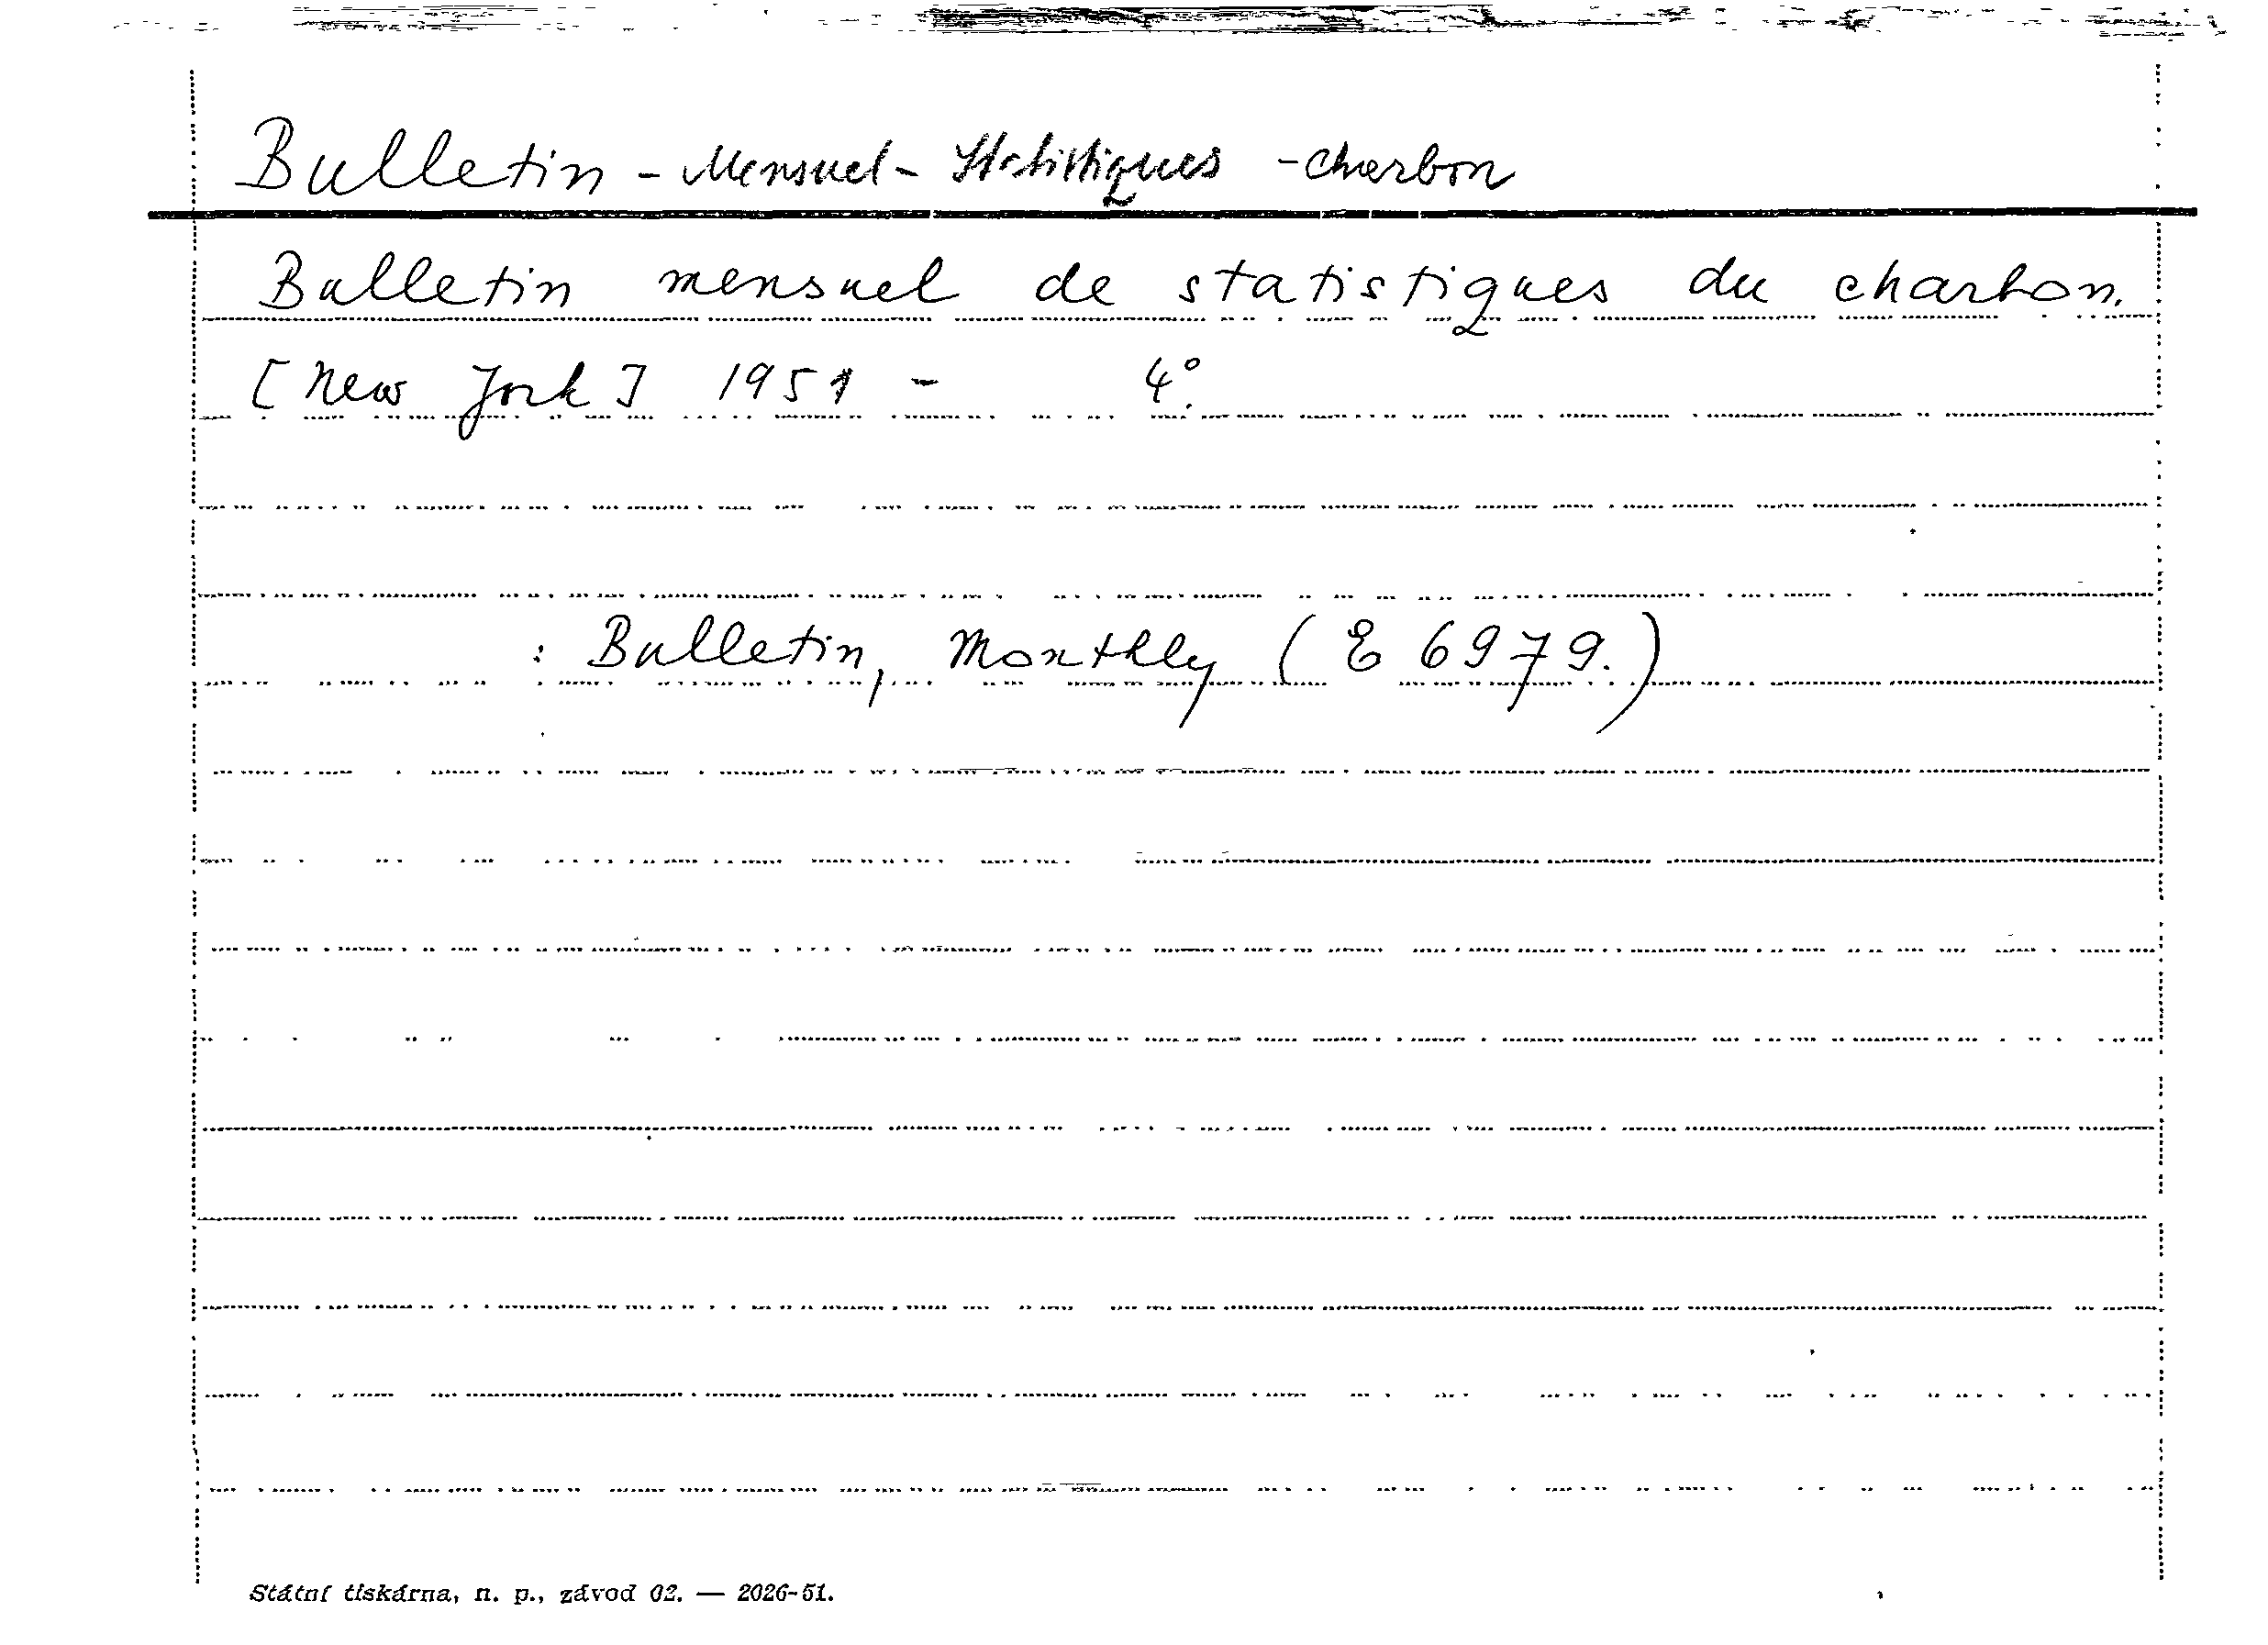 Bulletin - Mensuel - Statistiques - charbon
Bulletin mensuel de statistiques du charbon.
[New York] 1951 - 4°.
: Bulletin, Monthly (E 6979.)
Státní tiskárna, n. p., závod 02. — 2026-51.